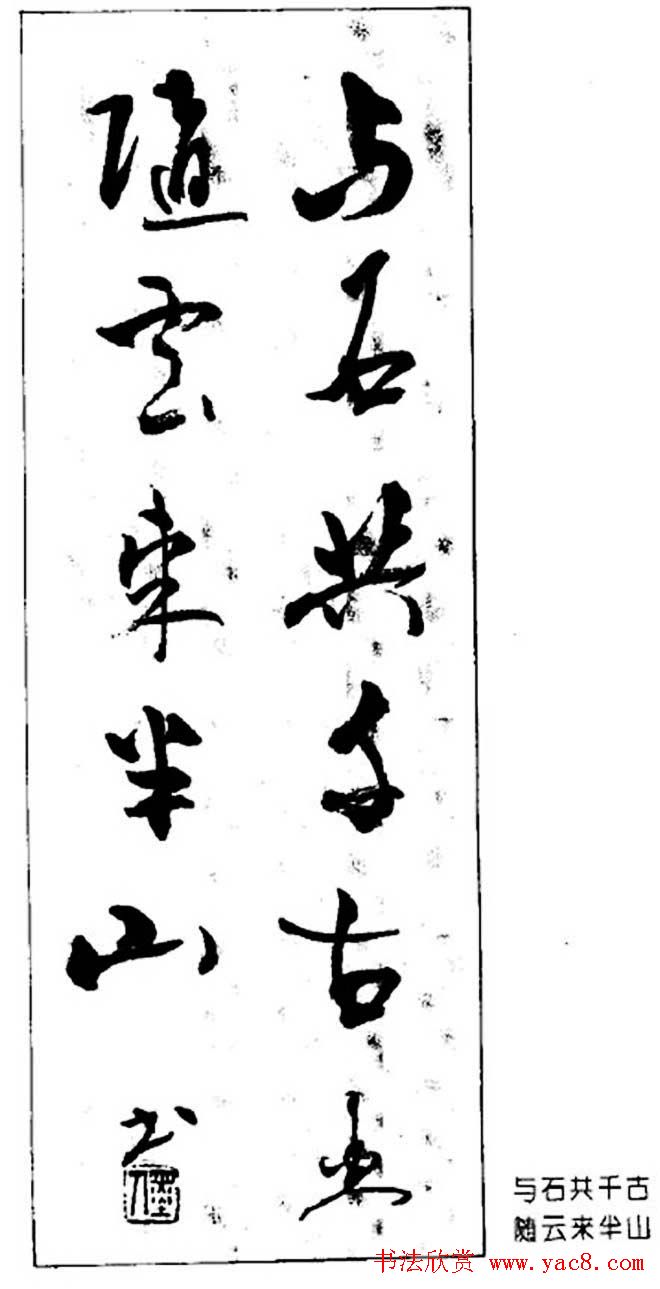 与石共千古
隨雲来半山
书
与石共千古
随云来半山
书法欣赏 www.yac8.com